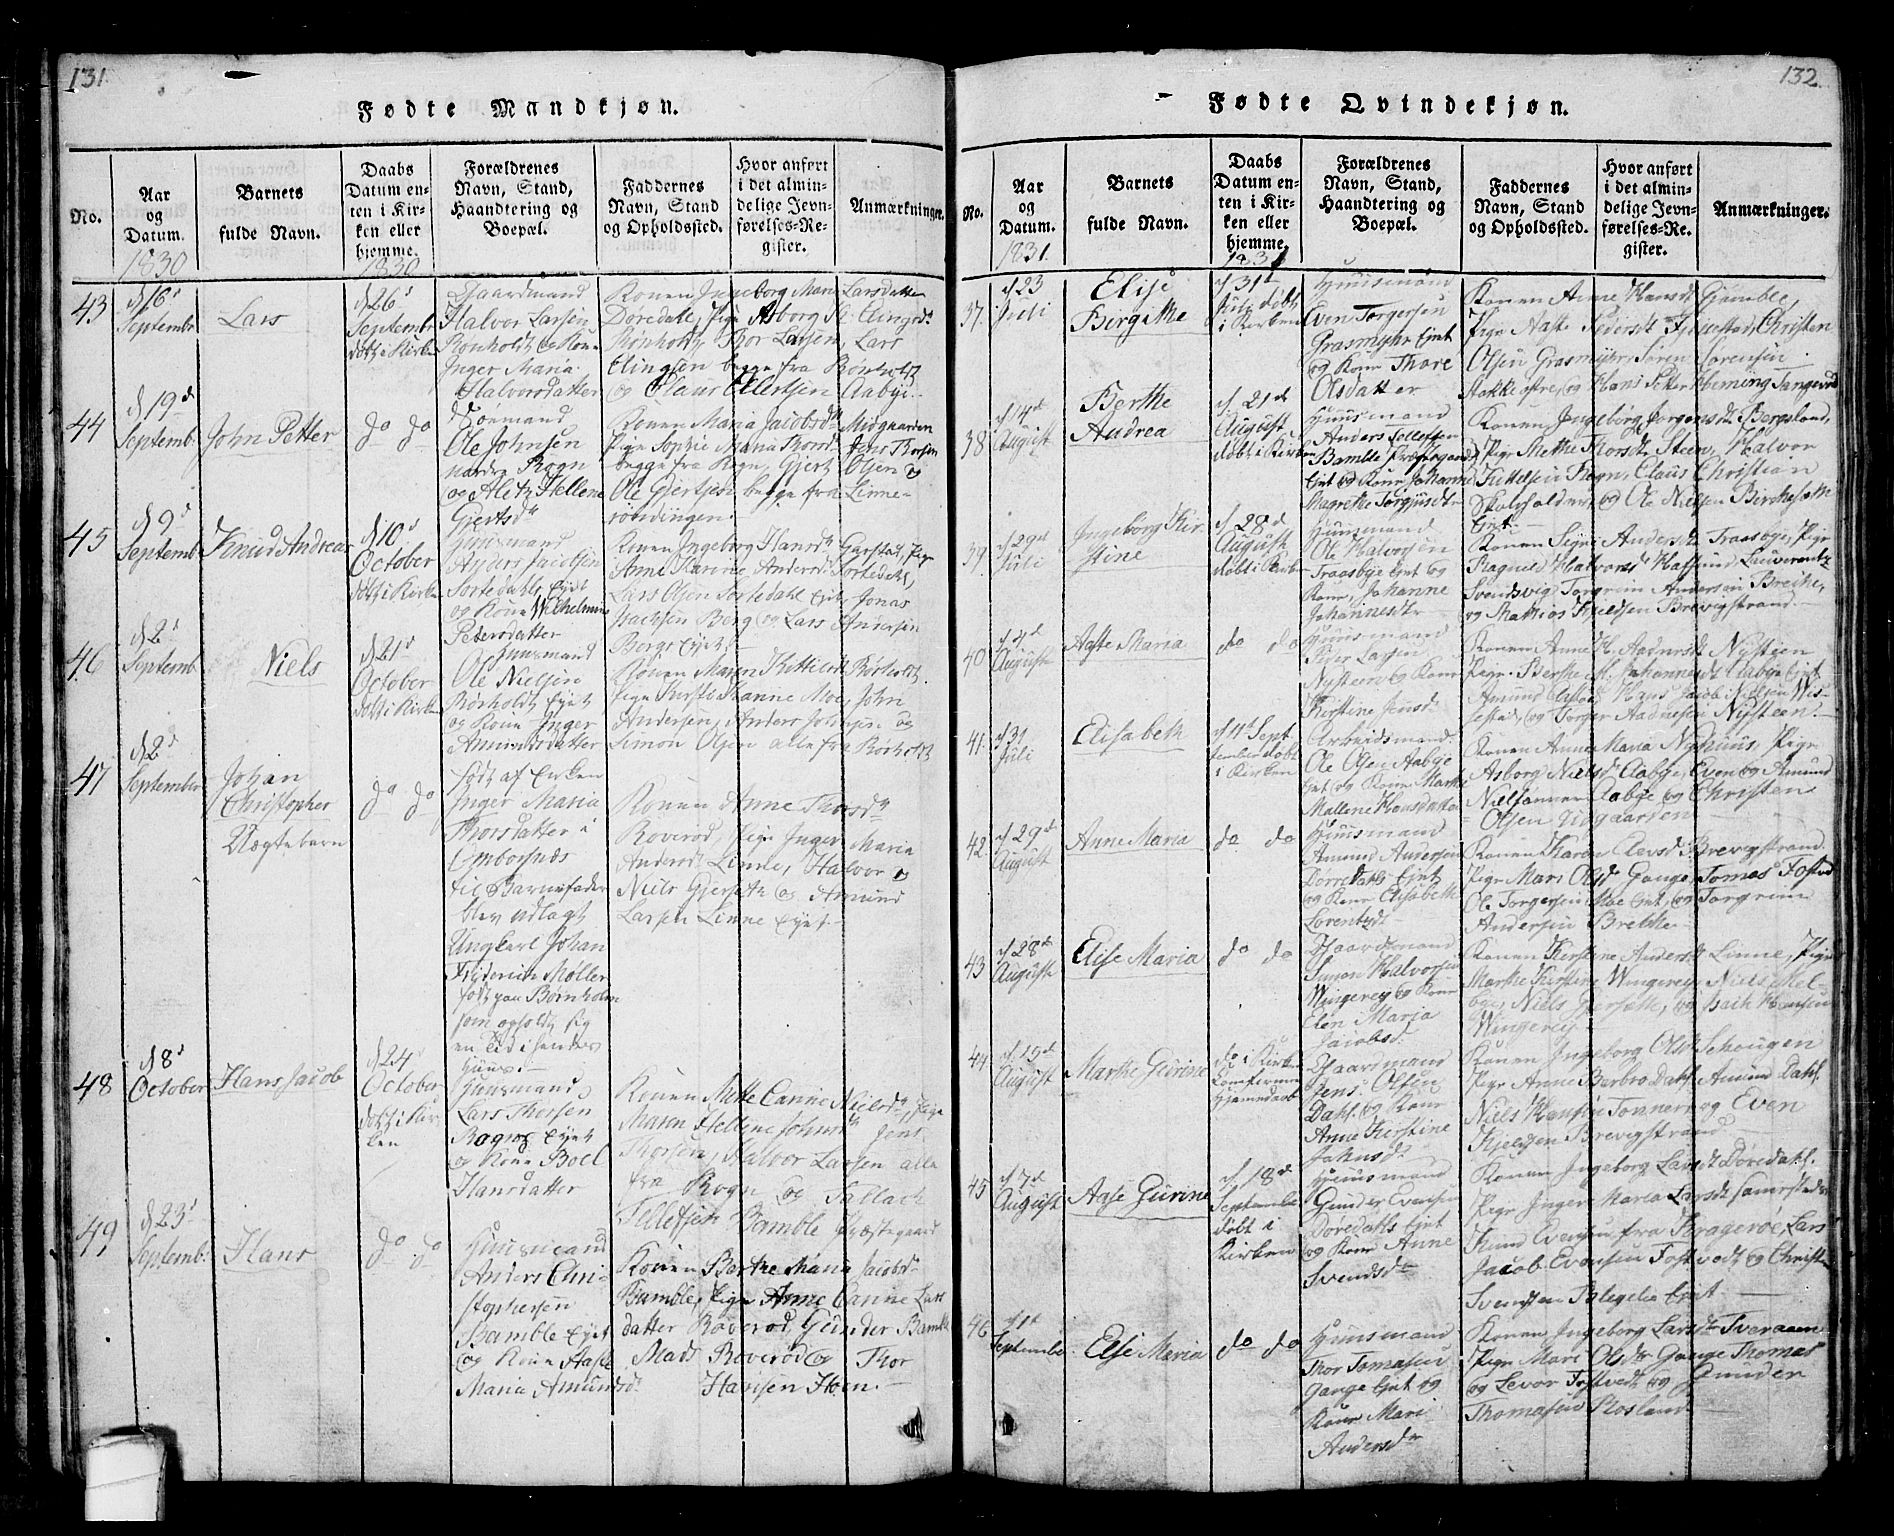 131
Fødte Mandkjøn.
No.
Aar
og
Datum.
1830
Barnets
fulde Navn.
Daabs
Datum en-
ten i Kir-
ken eller
hjemme.
1830
Forældrenes
Navn, Stand,
Haandtering og
Boepæl.
Faddernes
Navn, Stand
og Opholdssted.
Hvor anført
i det almin-
delige Jevn-
førelses-Re-
gister.
Anmærkninger.
43
d 16d
Septembr
Lars
d 26d
Septembr
døbt i Kirken
Gaardmand
Halvor Larsen
Rønholdt og Kone
Inger Maria
Halvorsdatter
Konen Ingeborg Mari Larsdatter
Doredale, Pige Asborg
Rønholt, Thor Larsen, Lars
Elingsen begge fra Rønholt
og Claus Ellertsen Aabye.
44
d 19d
Septemb.
John Petter
do do
Ole Johnsen
nordre Rogn
og Alet Hellene
Gjertsdr
Konen Maria Jacobsdr Midgaarden
Pige Sophie Maria Thorsdr Jens Thorsen
begge fra Rogn, Gjert Olsen og
Ole Gjertsen begge fra Linne-
45
d 9d
Septemb
Knud Andreas
d 10d
October
døbt i Kirken
Huusmand
Anders Jacobsen
Sortedahls Eyet
og Kone Wilhelmine
Petersdatter
Konen Ingeborg Hansdr Garstad, Pige
Anne Karine Andersdr Sortedahl,
Lars Olsen Sortedahl Eyet, Jonas
Isachsen Berg og Lars Andersen
Bergs Eyet
46
d 2d
Septemb.
Niels
d 21d
October
døbt i Kirken
Huusmand
Ole Nielsen
Rørholdt Eyet
og Kone Inger
Amundsdatter
Konen Maren Kittilsdr Rørholt.
Pige Kirsti Hanne Moe, John
Andersen, Anders Johnsen og
Simon Olsen alle fra Rørholt
47
d 2d
September
Johan
Christopher
Uægtebarn
do do
født af Enken
Inger Maria
Thorsdatter i
til Barnefader
blev udlagt
Ungkarl Johan
Friderich Møller
født paa Bornholm
som opholdt sig
en tid i hendes
Huus.
Konen Anne Thorsdr
Roverød, Pige Inger Maria
Andersdr Linne, Halvor og
Niels Gjerseth og Amund
Larsen Linne Eyet
48
d 8d
October
Hans Jacob
d 24d
October
døbt i Kir-
ken
Huusmand
Lars Thorsen
Rogns Eyet
og Kone Boel
Hansdatter
Konen Mette Canne Nielsdr, Pige
Maren Hellene Johnsdr Jens
Thorsen, Halvor Larsen alle
fra Rogn og Tallach
Tellefsen Bamble Præstegaard
49
d 23d
Septemb.
Hans
do do
Huusmand
Anders Chri-
stophersen
Bamble Eyet
og Kone Aase
Maria Amundsdr
Konen Barthe Maria Jacobsdr
Bamble, Pige Anne Canne Lars
datter Roverød, Gunder Bamble
Mads Roverød og Thor
Hansen Hoen.
132
Fødte Qvindekjøn.
No.
Aar
og
Datum.
1831.
Barnets
fulde Navn.
Daabs
Datum en-
ten i Kir-
ken eller
hjemme.
1831
Forældrenes
Navn, Stand,
Haandtering og
Boepæl.
Faddernes
Navn, Stand
og Opholdssted.
Hvor anført
i det almin-
delige Jevn-
førelses-Re-
gister.
Anmærkninger.
37.
d 23
Juli
Elise
Bergithe
d 31d
July døbt
i Kirken
Huusmand
Even Torgersen
Grasmyhr Eyet
og Kone Thore
Olsdatter
Konen Anne Hansdr Gjemble,
Pige Aaste Pedersdr Fjelestad, Christen
Olsen Grasmyhr Søren Sørensen
Stokke øfre, og Hans Petter Heming Tangevald
38
d 14d
August
Berthe
Andrea
d 21de
August
døbt i Kirken
Huusmand
Anders Tellefsen
Bamble Præstegaard
Eyet og Kone Johanne
Magrethe Torgjusdtr
Konen Ingeborg Jorgensdr Bergsland,
Pige Methe Thorsdr Steen, Halvor
Kittelsen Rogn, Claus Christian
Skoleholder, og Ole Nielsen Bircheholm
Eyet.
39
d 29d
Juli
Ingeborg Kir-
stine
d 28d
August
døbt i Kirken
Huusmand
Ole Halvorsen
Traasbye Eyet og
Kone, Johanne
Johannesdr
Konen Signe Andersdr Traasbye, Pige
Ragnild Halvorsdr Hafsund Lauverentz
Svendsvig Torgrim Andersen Breike,
og Mathias Kjeldsen Brevigstrand.
40
d 4d
August
Aaste Maria
do do
Huusmand
Peder Larsen
Nysteen og Kone
Kirstine Jensdr
Konen Anne H. Aadnesdr Nysteen
Pige Berthe M. Johannesdr Aabye Eyet
Amund Hans Jacob Nielsen Wis-
sestad, og Torger Aadnesen Nysteen.
41.
d 31
Juli
Elisabeth
d 4d Sept
tember døbt
i Kirken
Arbeidsmand
Ole Olsen Aabye
Eyet og Kone Marthe
Mallene Hansdatter
Konen Anne Maria Nyhuus, Pige
Asborg Nielsdr Aabye, Even og Amund
Nielsønner Aabye og Christen
Olsen Nigaarden
42.
d 29d
August
Anne Maria
do do
Huusmand
Amund Andersen
Dorredahls Eyet
og Kone Elisabeth
Lorentzdr
Konen Karen Brevigstrand.
Pige Mari Olsdr Gonge, Tomas Fostvd
Ole Torgersen Moe Eyet, og Torgrim
Andersen Brekke
43
d 28d
August
Elise Maria
do do
Gaardmand
Simon Halvorsen
Wingerey og Kone
Elen Maria
Jacobsdr
Konen Kirstine Andersdr Linne, Pige
Marthe Kirstine Wingerey, Niels Mel-
bye, Niels Gjerseth, og Isach Hansen
Wingerey
44
d 19d
August
Marthe Gurine
do i Kirken
Confirmeret
Hjemmedaab
Gaardmand
Jens Olsen
Dahl og Kone
Anne Kirstine
Johnsdr
Konen Ingeborg Olsdr Schougen
Pige Anne Barbro Dahl, Amund Dahl.
Niels Hansen Tonnern og Even
Kjeldsen Brevigstrand
45
d 7d
August
Aase Gurine
d 18d
September
døbt i
Kirken
Huusmand
Gunder Evensen
Doredahls Eyet
og Kone Anne
Svendsdr
Konen Ingeborg Larsdr Doredahl.
Pige Inger Maria Larsdr
Knud Evensen fra Kragerøe, Lars
Jacob Evensen Fostvedt, og Christen
Svendsen Blegelie Eyet
46
d 1d
September
Else Maria
do do
Huusmand
Thor Tomasen
Gonge Eyet og
Kone Mari
Andersdr
Konen Ingeborg Larsdr Tveraaen
Pige Mari Olsdr Gonge Thomas
og Levor Fostvedt og Gunder
Thomasen Roslund